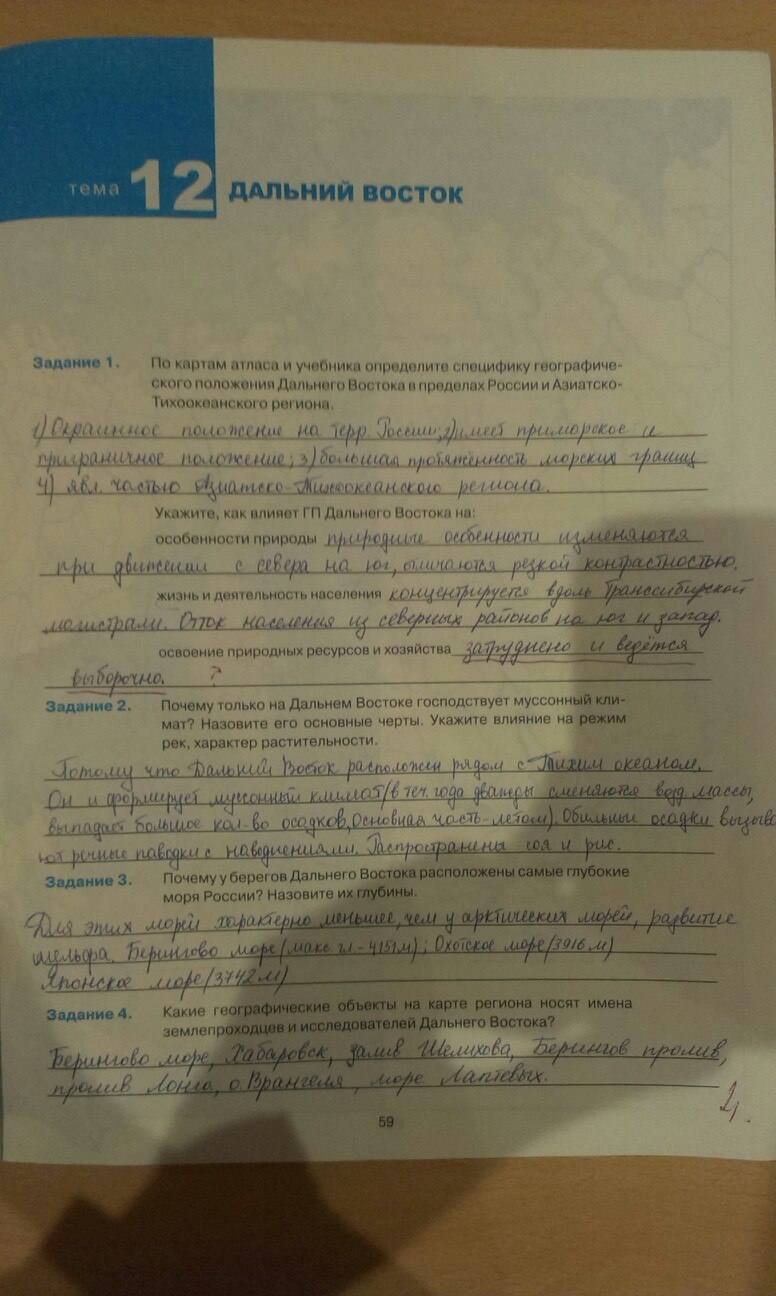 тема 12 ДАЛЬНИЙ ВОСТОК
Задание 1. По картам атласа и учебника определите специфику географиче-
ского положения Дальнего Востока в пределах России и Азиатско-
Тихоокеанского региона.
1) Окраинное положение на терр. России; 2) имеет приморское и
приграничное положение; 3) большая протяженность морских границ
4) явл. частью Азиатско-Тихоокеанского региона.
Укажите, как влияет ГП Дальнего Востока на:
особенности природы природные особенности изменяются
при движении с севера на юг, отличаются резкой контрастностью.
жизнь и деятельность населения концентрируется вдоль Транссибирской
магистрали. Отток населения из северных районов на юг и запад.
освоение природных ресурсов и хозяйства затруднено и ведётся
выборочно. ?
Задание 2. Почему только на Дальнем Востоке господствует муссонный кли-
мат? Назовите его основные черты. Укажите влияние на режим
рек, характер растительности.
Потому что Дальний Восток расположен рядом с Тихим океаном.
Он и формирует муссонный климат (в теч. года дважды сменяются возд. массы,
выпадает большое кол-во осадков, основная часть-летом). Обильные осадки вызыва
ют речные паводки с наводнениями. Распространены соя и рис.
Задание 3. Почему у берегов Дальнего Востока расположены самые глубокие
моря России? Назовите их глубины.
Для этих морей характерно меньшее, чем у арктических морей, развитие
шельфа. Берингово море (макс гл-4151м); Охотское море (3916 м)
Японское море (3742 м)
Задание 4. Какие географические объекты на карте региона носят имена
землепроходцев и исследователей Дальнего Востока?
Берингово море, Хабаровск, залив Шелихова, Берингов пролив,
пролив Лонга, о. Врангеля, море Лаптевых.
59